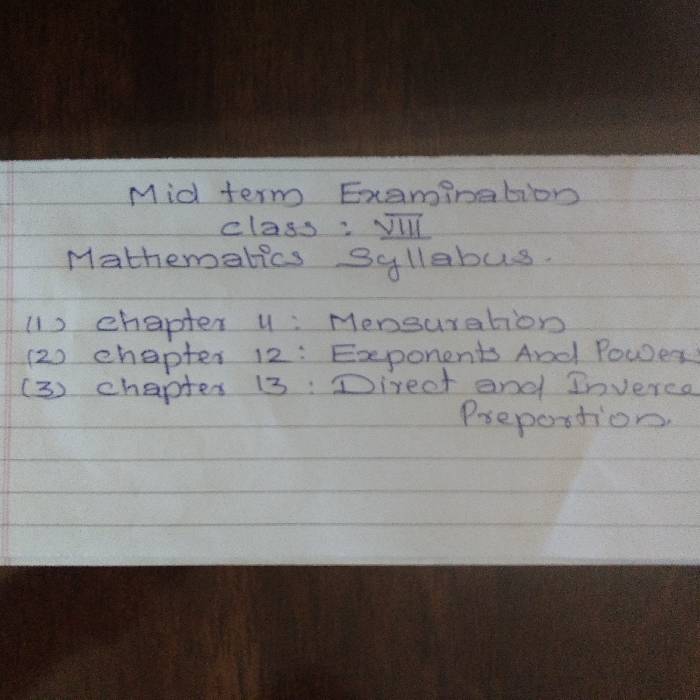 Mid term Examination
Class : VIII
Mathematics Syllabus.
(1) Chapter 11 : Mensuration
(2) Chapter 12 : Exponents And Power
(3) Chapter 13 : Direct and Inverce
Preportion.